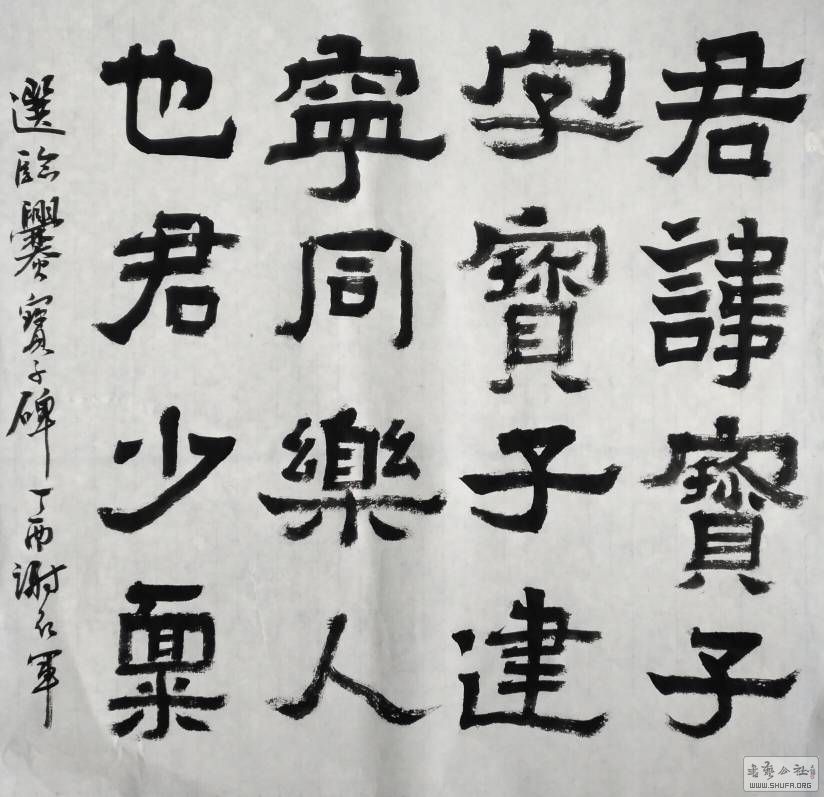 君諱寶子
字寶子建
寧同樂人
也君少稟
選臨爨寶子碑 丁酉 謝 軍
WWW.SHUFA.ORG